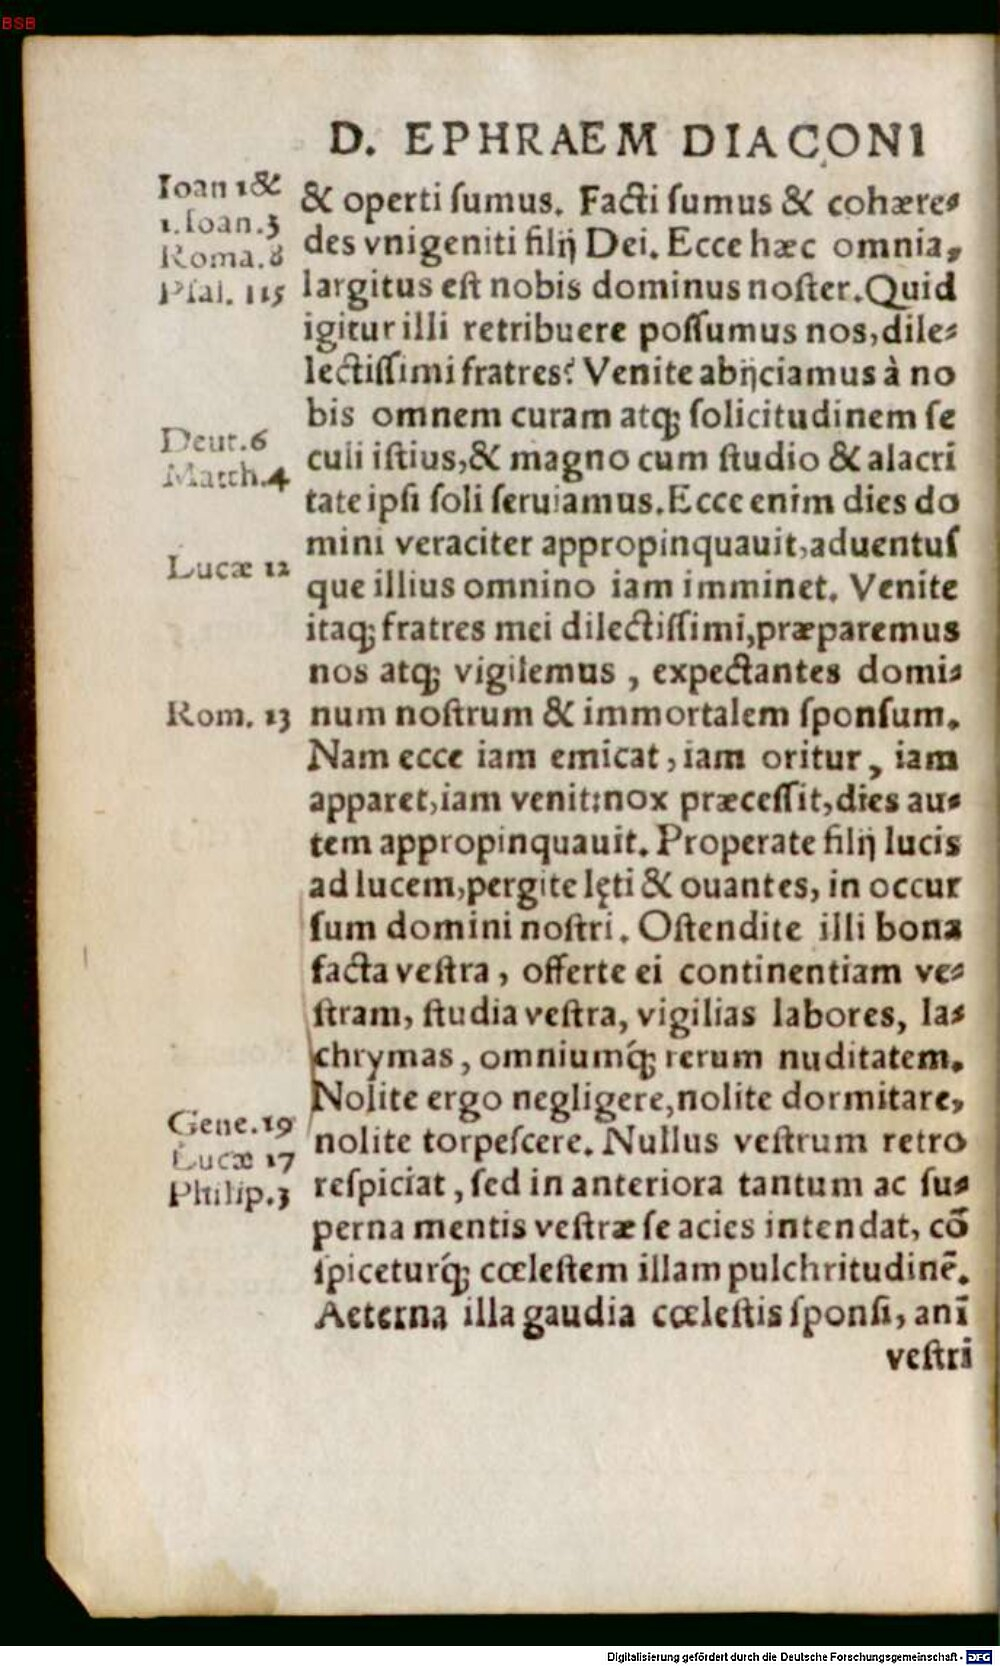 BSB
D. EPHRAEM DIACONI
Ioan 1 &
1. Ioan. 3
Roma. 8
Psal. 115
Deut. 6
Matth. 4
Lucæ 12
Rom. 13
Gene. 19
Lucæ 17
Philip. 3
& operti ſumus. Facti ſumus & cohære⸗
des vnigeniti filij Dei. Ecce hæc omnia,
largitus eſt nobis dominus noſter. Quid
igitur illi retribuere poſſumus nos, dile⸗
lectiſſimi fratres? Venite abijciamus à no
bis omnem curam atq; ſolicitudinem ſe
culi iſtius, & magno cum ſtudio & alacri
tate ipſi ſoli ſeruiamus. Ecce enim dies do
mini veraciter appropinquauit, aduentuſ
que illius omnino iam imminet. Venite
itaq; fratres mei dilectiſſimi, præparemus
nos atq; vigilemus, expectantes domi⸗
num noſtrum & immortalem ſponſum.
Nam ecce iam emicat, iam oritur, iam
apparet, iam venit: nox præceſſit, dies au⸗
tem appropinquauit. Properate filij lucis
ad lucem, pergite lęti & ouantes, in occur
ſum domini noſtri. Oſtendite illi bona
facta veſtra, offerte ei continentiam ve⸗
ſtram, ſtudia veſtra, vigilias labores, la⸗
chrymas, omniumq́; rerum nuditatem.
Nolite ergo negligere, nolite dormitare,
nolite torpeſcere. Nullus veſtrum retro
reſpiciat, ſed in anteriora tantum ac ſu⸗
perna mentis veſtræ ſe acies intendat, cō
ſpiceturq́; cœleſtem illam pulchritudinē.
Aeterna illa gaudia cœleſtis ſponſi, anī
veſtri
Digitalisierung gefördert durch die Deutsche Forschungsgemeinschaft - DFG